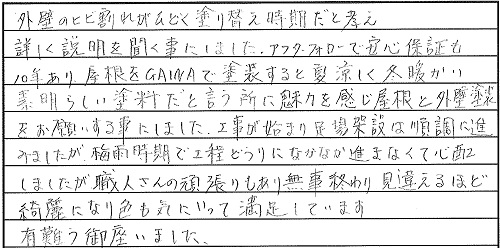 外壁のヒビ割れがひどく塗り替え時期だと考え
詳しく説明を聞く事にしました。アフターフォローで安心保証も
10年あり、屋根をGAINAで塗装すると夏涼しく冬暖かい
素晴らしい塗料だと言う所に魅力を感じ屋根と外壁塗装
をお願いする事にしました。工事が始まり足場架設は順調に進
みましたが梅雨時期で工程どうりになかなか進まなくて心配
しましたが職人さんの頑張りもあり無事終わり見違えるほど
綺麗になり色も気にいって満足しています
有難う御座いました。